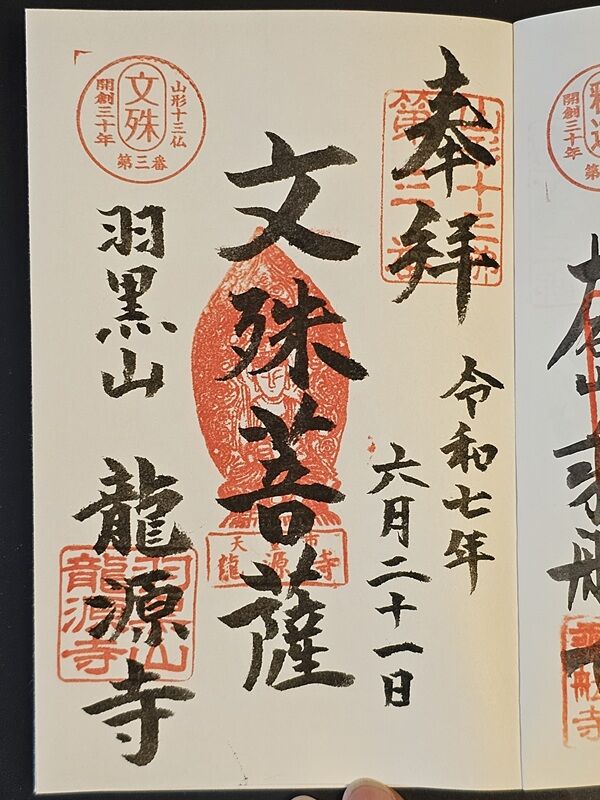 奉拝
山形十三仏
第三番
令和七年
六月二十一日
文殊菩薩
天童市
龍源寺
文殊
山形十三仏
開創三十年
第三番
羽黒山 龍源寺
羽黒山
龍源寺
開創三十年